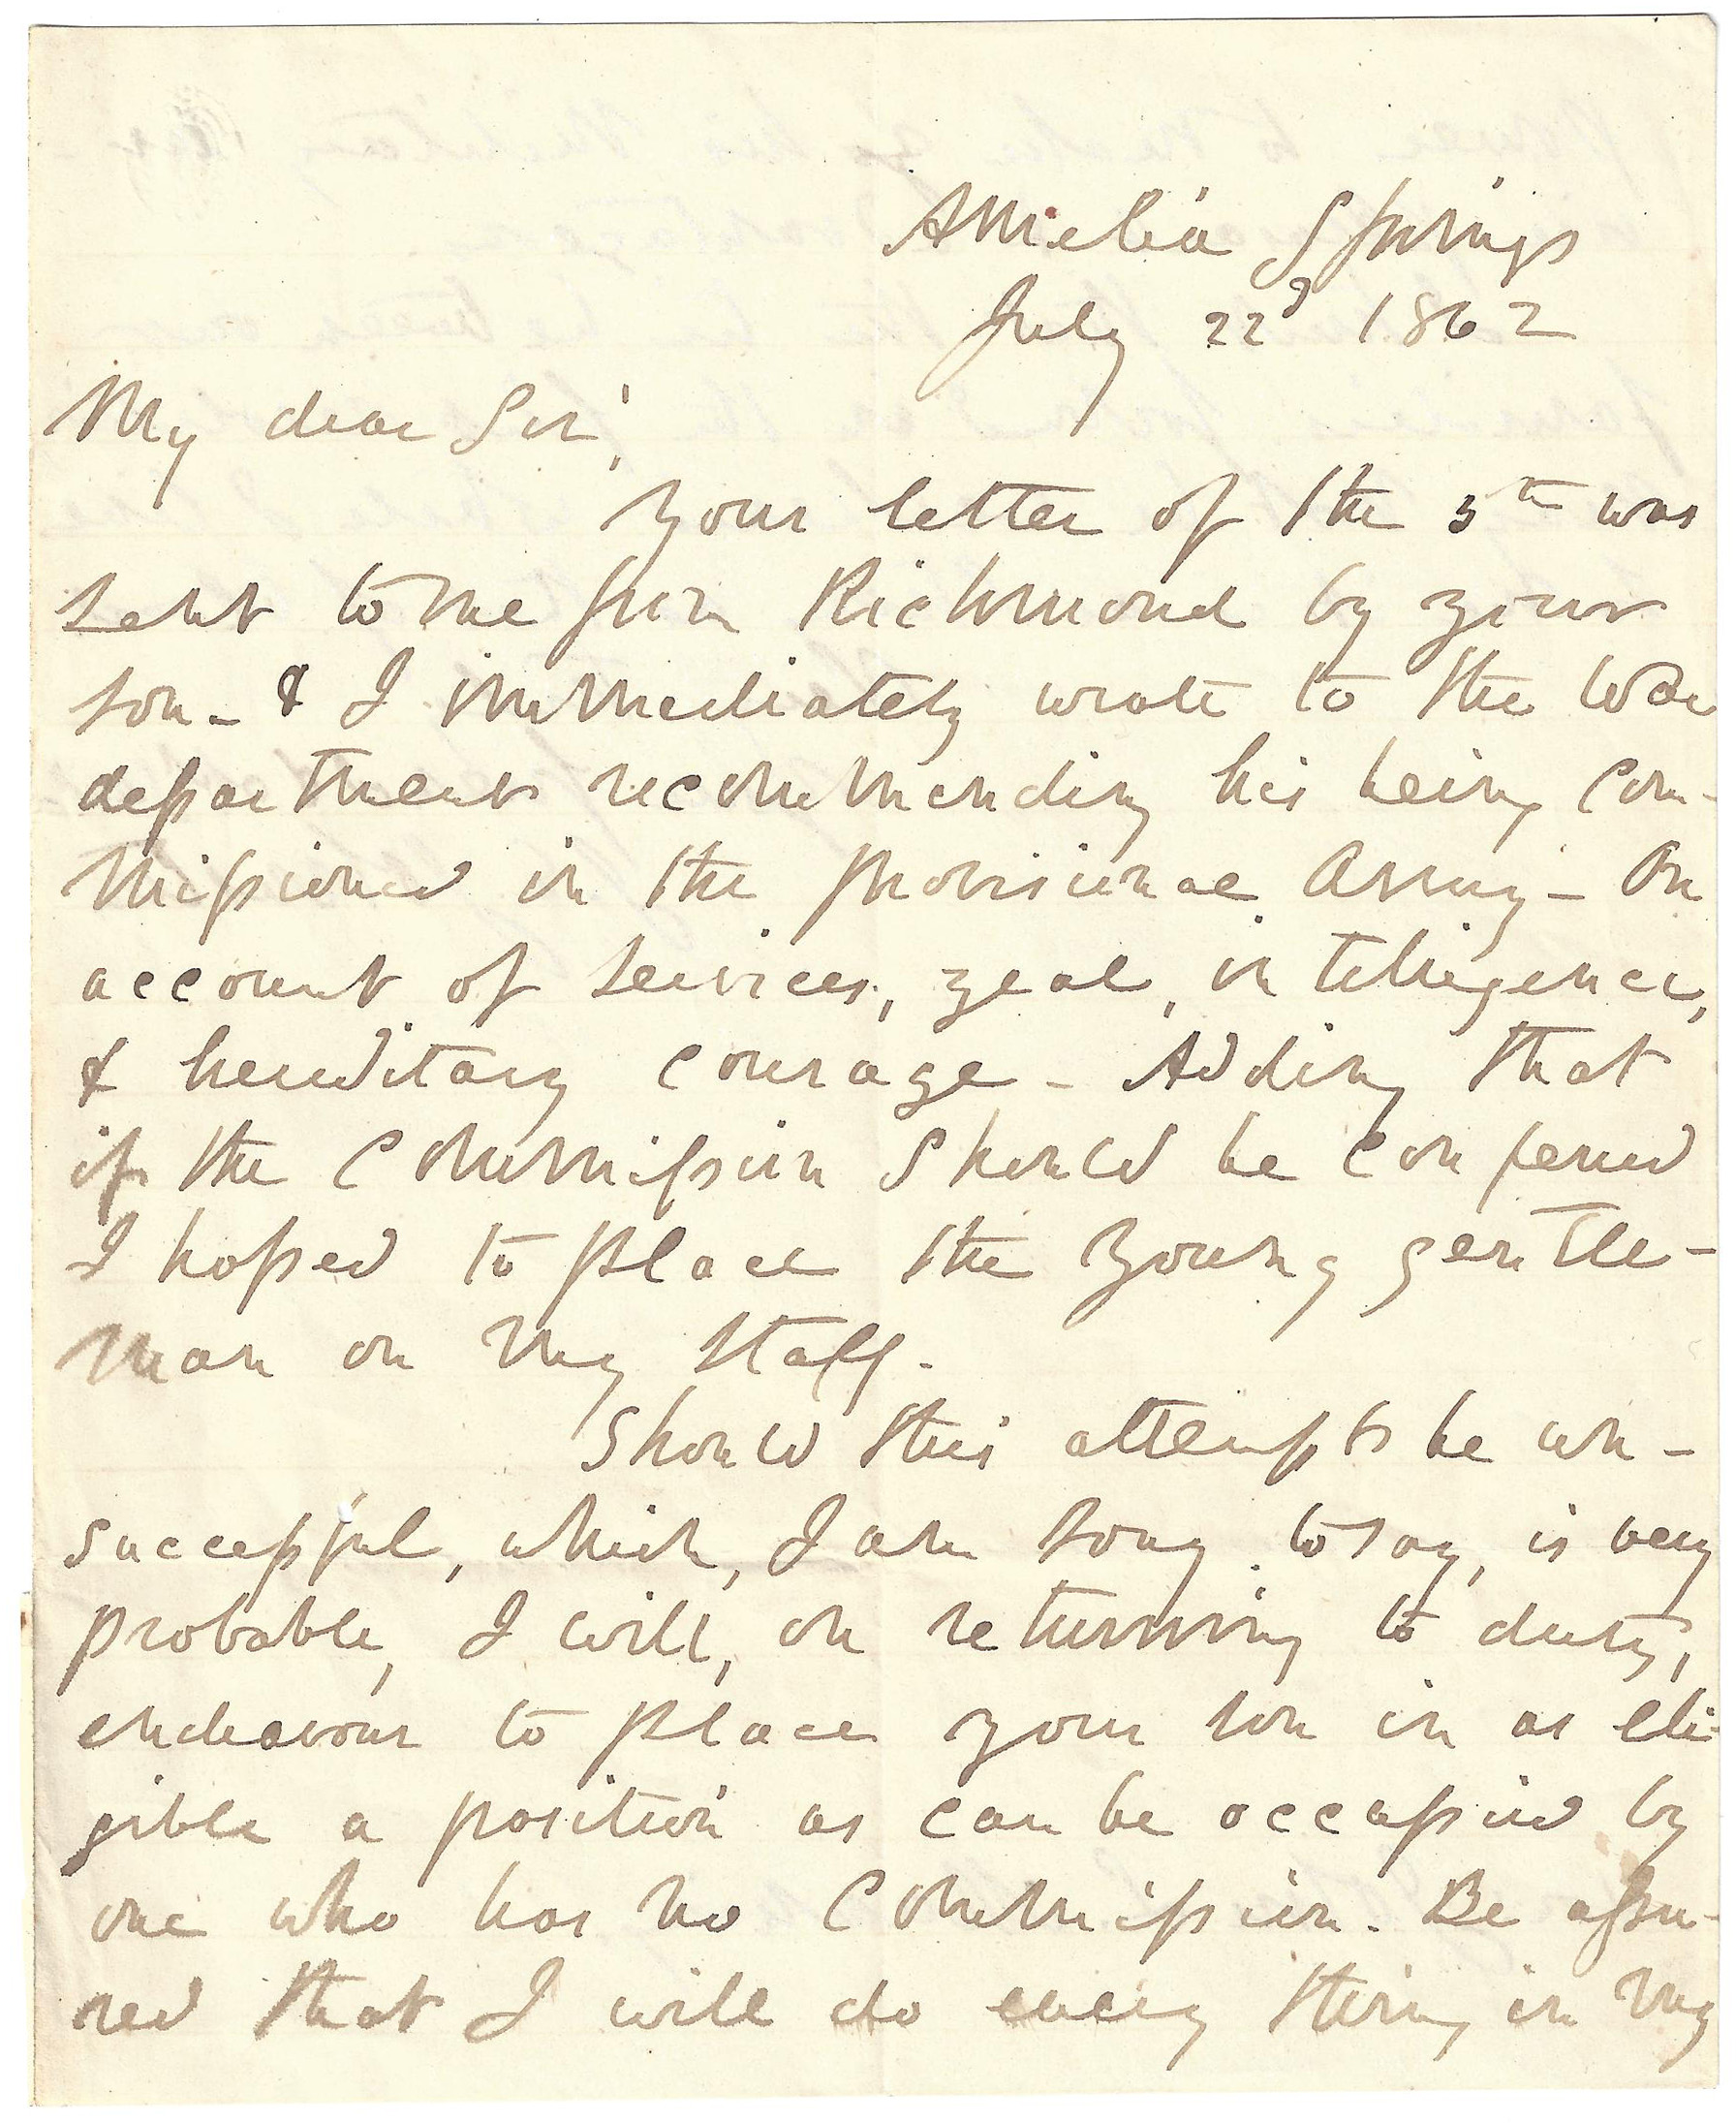 Amelia Springs
July 22d 1862
My dear Sir,
Your letter of the 5th was
sent to me from Richmond by your
son - & I immediately wrote to the War
department recommending his being com-
missioned in the provisional Army - On
account of services, zeal, intelligence,
& hereditary courage - Adding that
if the Commission should be conferred
I hoped to place the young gentle-
man on my staff.
Should this attempt be un-
successful, which, I am sorry to say, is very
probable, I will, on returning to duty,
endeavour to place your son in as eli-
gible a position as can be occupied by
one who has no Commission. Be assu-
red that I will do every thing in my